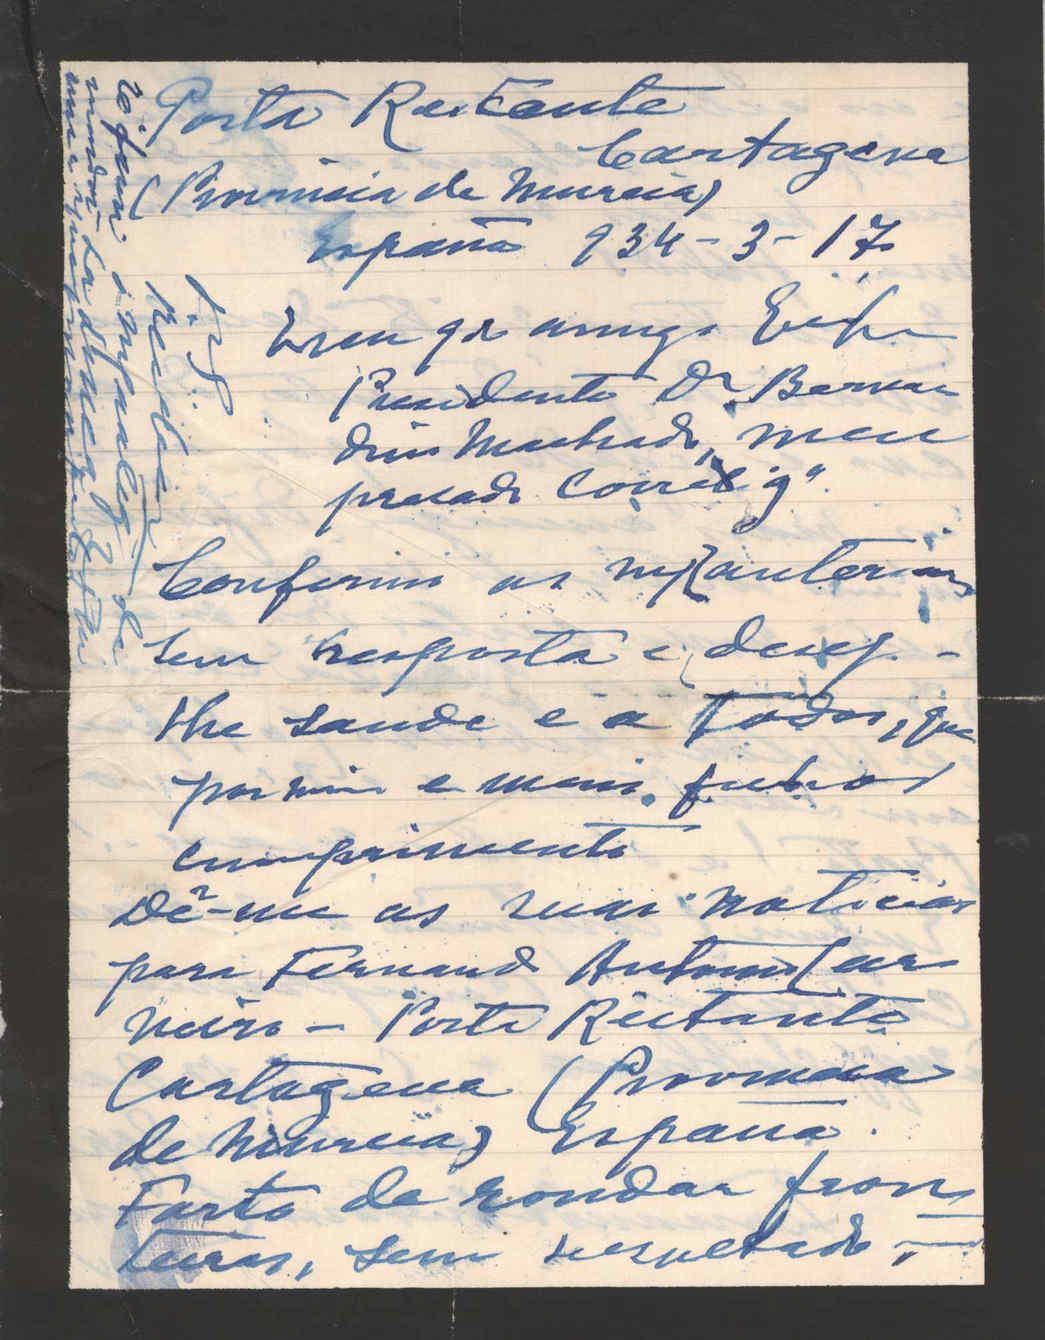 Posta Restante
Cartagena
(Provincia de Murcia)
España 934-3-17
Meu qdo amigo Exmo
Presidente Dr. Bernar
dino Machado, meu
presado Correlig°.
Confirmo as m/ anteriores
sem resposta e desejo-
lhe saude e a todos, que
por mim e meus filhos
cumprimento
Dê-me as suas noticias
para Fernando Antonio Car
neiro - Posta Restante
Cartagena (Provincia
de Murcia) España.
Farto de rondar fron
teiras, sem resultado,
P.S.
Recebeu